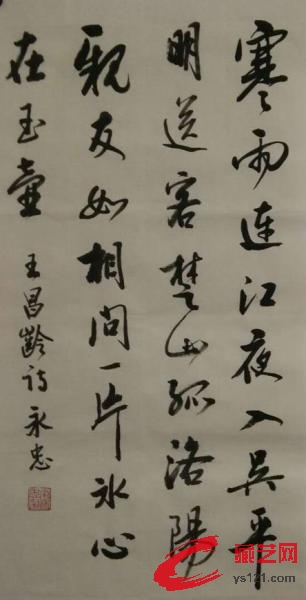 寒雨连江夜入吴平
明送客楚山孤洛陽
親友如相问一片冰心
在玉壶
王昌龄诗永忠
藏艺网
ys121.com